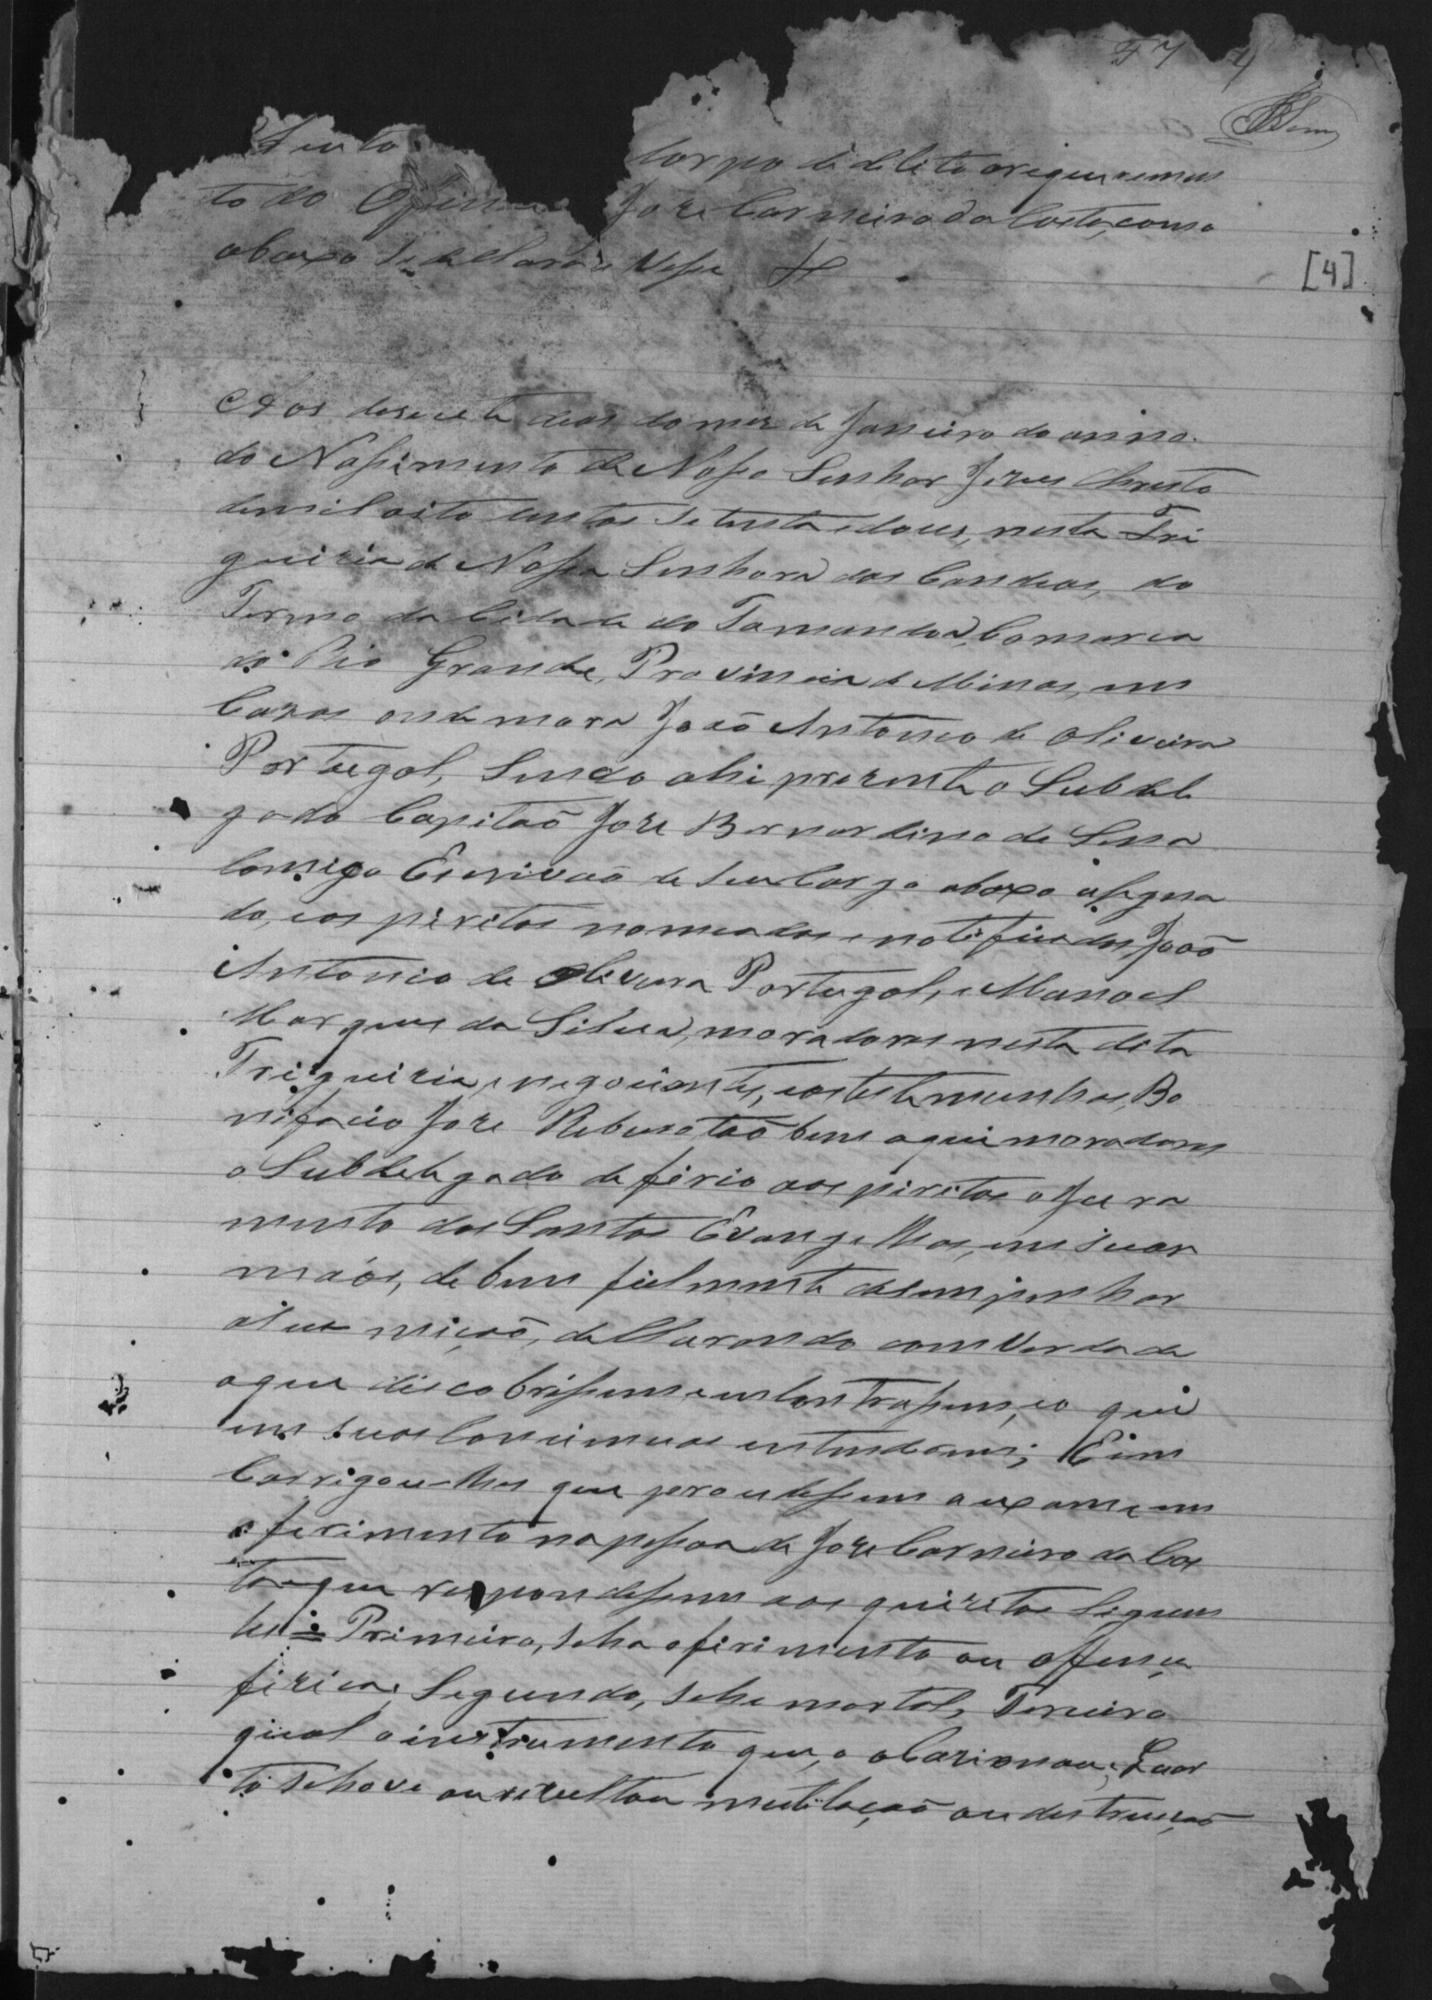 F 7 4
Auto Corpo di delito arequerimen
to do Ofendido Joze Carneiro da Costa, como
abaxo Sedellara e Vesse
[4]
Aos deseceta dias do mez de Janeiro do anno
do Nassimento de Nosso Senhor Jezus Christo
demil oito centos Setenta edous, nesta Fri
guizia de Nossa Senhora das Candeas, do
Termo da Cidade do Tamandoa, Comarca
do Rio Grande, Provincia de Minas, em
Cazas onde mora João Antonio de Oliveira
Portugal, Sendo ahi prezente o Subdele
gado Capitaõ Joze Bernardino de Sena
Comigo Escrivaõ de seu Cargo abaxo asegna
do, eos piritos nomeados enotificados, Joaõ
Antonio de Oliveira Portugal, e Manoel
Marques da Silva, moradores nesta dita
Friguizia, enegociantes, eastestemunhas, Bo
nifacio Joze Rebuso taõ bem aqui moradores
o Subdelegado deferio aos piritos o Jura
mento dos Santos Evangelhos, em suas
maõs, de bem fielmente desempenhar
asua miçaõ, dellarando com Verdade
aque discobrissem eemContrassem, eo que
em suas Conciencias entenderem; Eem
Carrigou-lhes que persedessem auxame em
oferimento napessoa de Joze Carneiro da Cos
ta eque respondessem aos quizitos Siguen
tes = Primeiro, Seha oferimento ou offença
fizica; Segundo, Sehe mortal, Terceiro
qual oinstrumento que, o oCazionou; Quar
to Sehove ou rezultou mutilaçaõ ou destruiçaõ